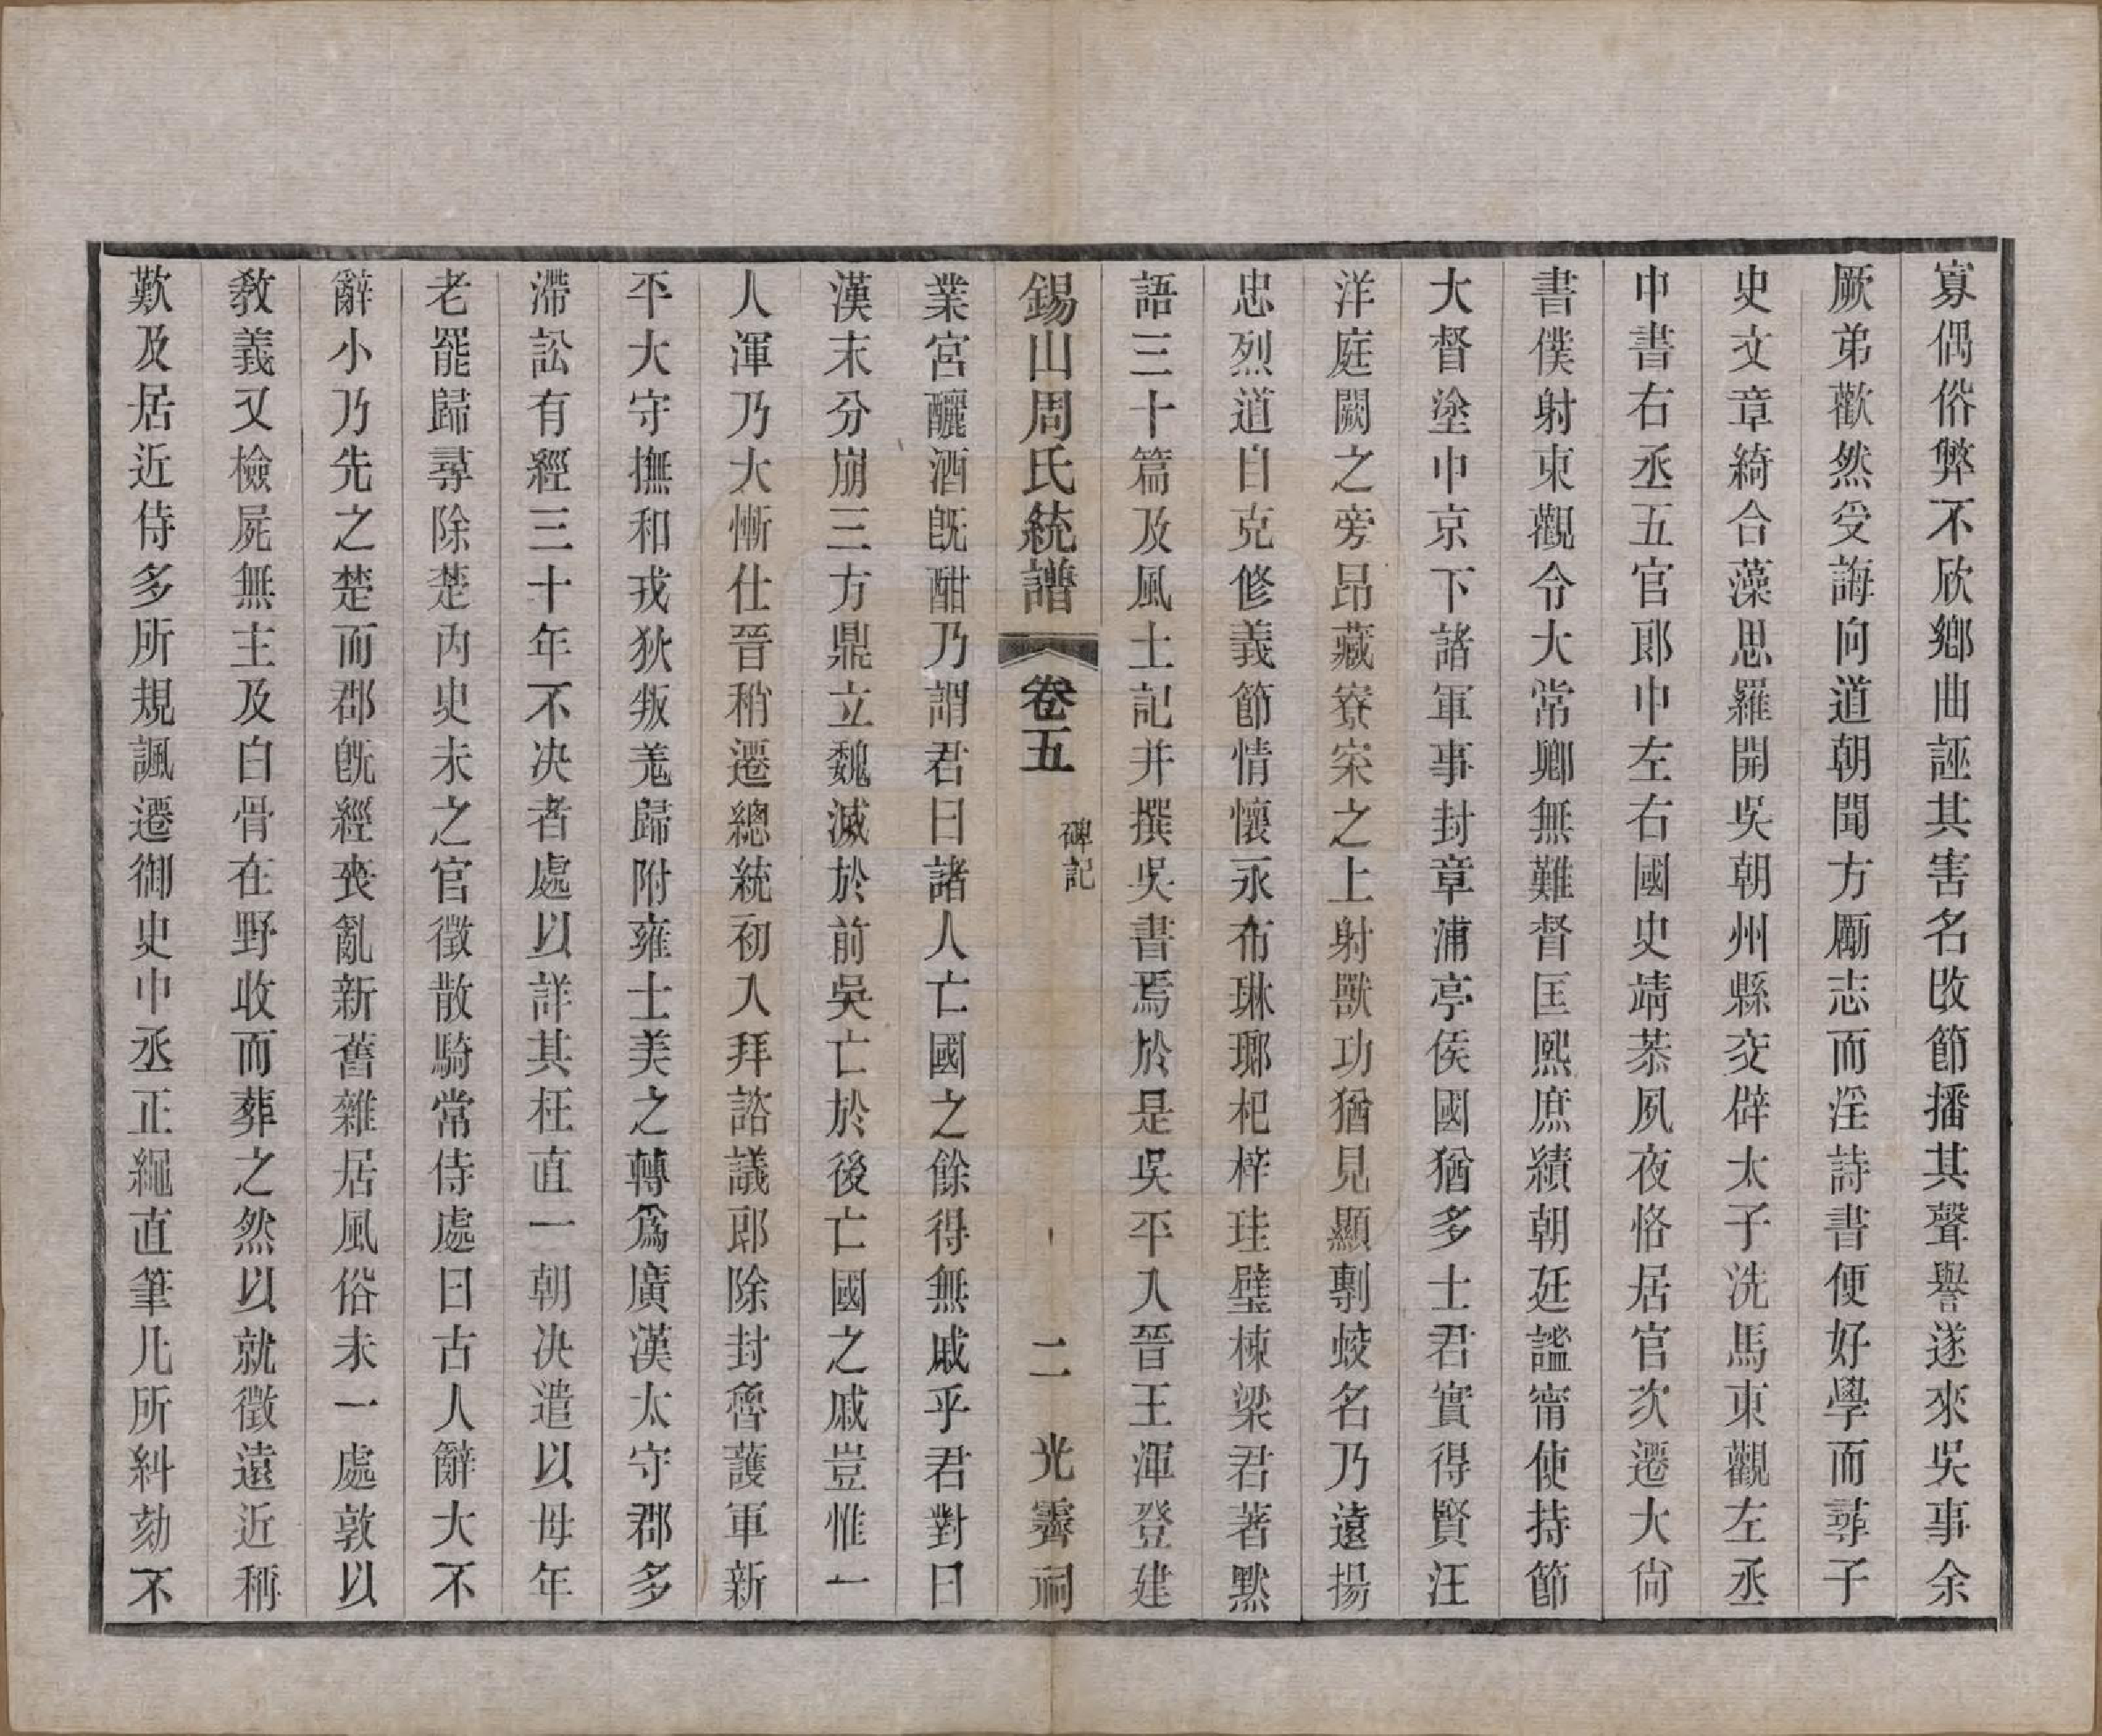 寡偶俗弊不欣鄉曲誣其害名改節播其聲譽遂來吳事余
厥弟歡然受誨向道朝聞方厲志而淫詩書便好學而尋子
史文章綺合藻思羅開吳朝州縣交辟太子洗馬東觀左丞
中書右丞五官郎中左右國史靖恭夙夜恪居官次遷大尙
書僕射東觀令大常卿無難督匡熙庶績朝廷謐甯使持節
大督塗中京下諸軍事封章浦亭侯國猶多士君實得賢汪
洋庭闕之旁昂藏寮寀之上射獸功猶見顯剸蛟名乃遠揚
忠烈道自克修義節情懷永布琳瑯杞梓珪璧棟梁君著默
語三十篇及風土記并撰吳書焉於是吳平入晉王渾登建
錫山周氏統譜 卷五 碑記 二 光霽祠
業宮釃酒旣酣乃謂君曰諸人亡國之餘得無戚乎君對曰
漢末分崩三方鼎立魏滅於前吳亡於後亡國之戚豈惟一
人渾乃大慚仕晉稍遷總統初入拜諮議郎除封魯護軍新
平大守撫和戎狄叛羌歸附雍士美之轉爲廣漢太守郡多
滯訟有經三十年不決者處以詳其枉直一朝決遣以母年
老罷歸尋除楚內史未之官徵散騎常侍處曰古人辭大不
辭小乃先之楚而郡旣經喪亂新舊雜居風俗未一處敦以
敎義又檢屍無主及白骨在野收而葬之然以就徵遠近稱
歎及居近侍多所規諷遷御史中丞正繩直筆凡所糾劾不